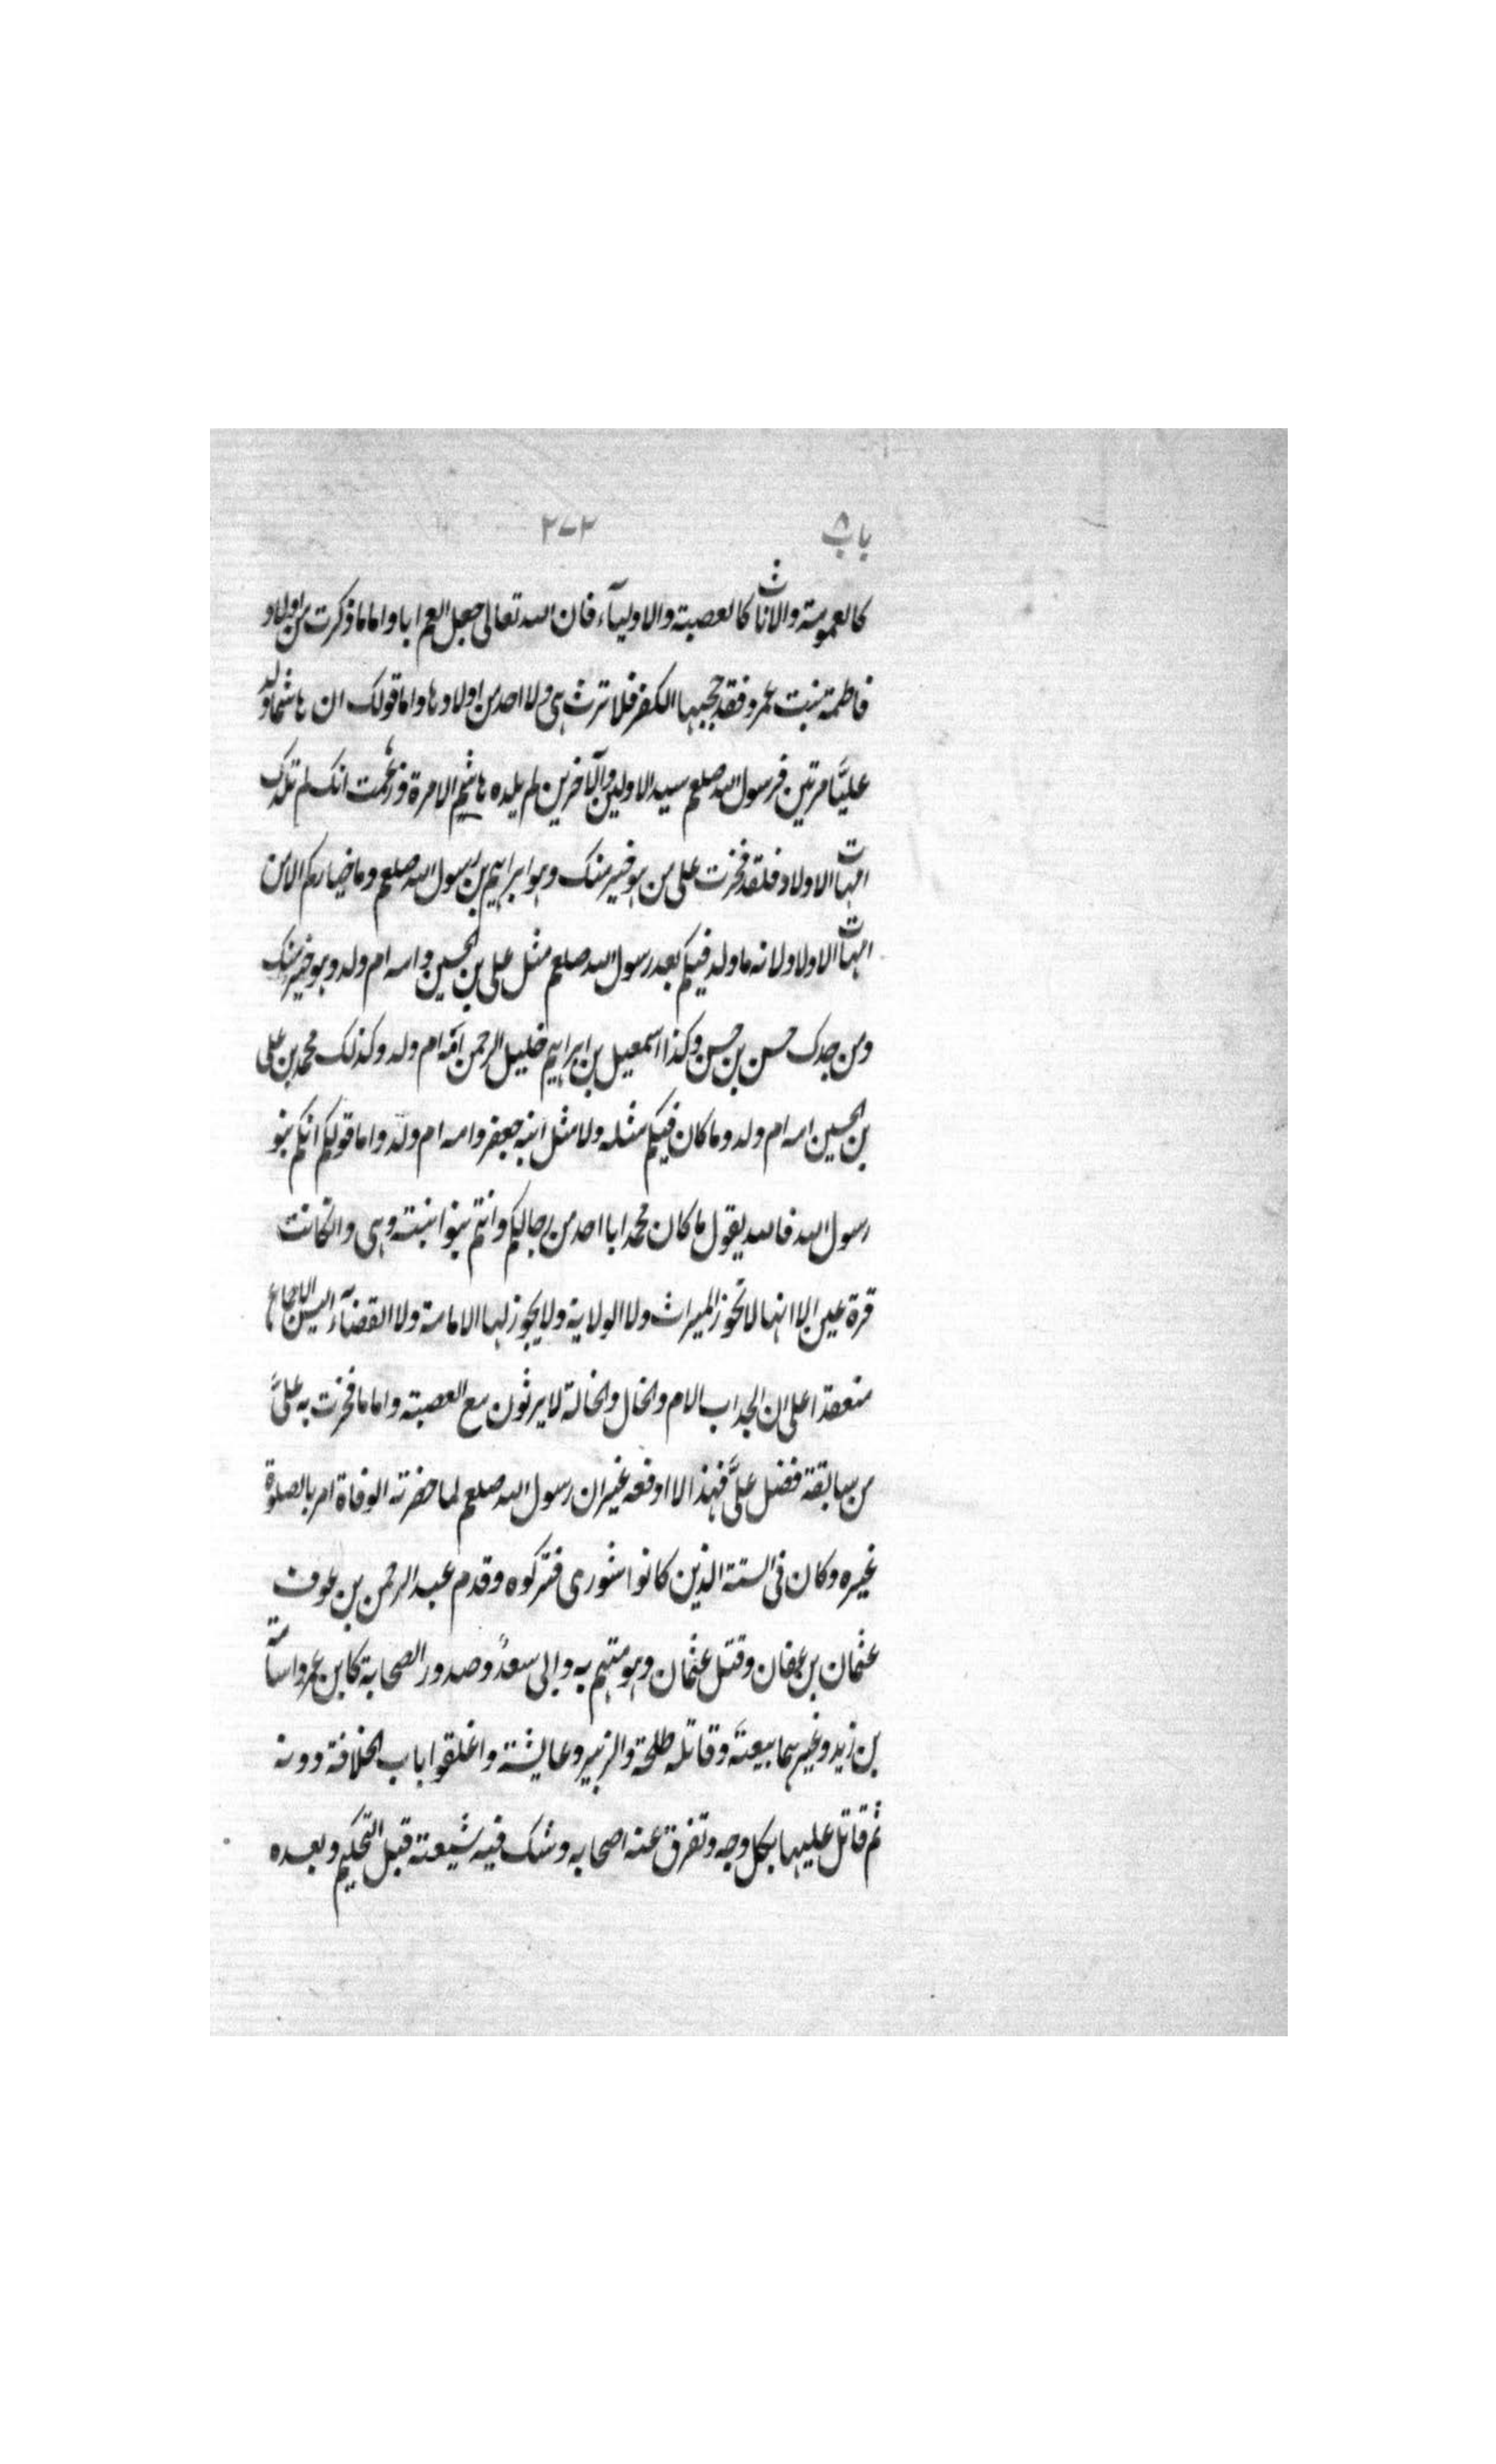 باب ٨ ٢٧٢
كالعمومة والاناث كالعصبة والاوليآء فان الله تعالى جعل العم ابا واما ما ذكرت من اولاد
فاطمة بنت عمرو فقد حجبها الكفر فلا ترث هى ولا احد من اولادها واما قولك ان هاشما ولد
عليًّا مرتين فرسول الله صلعم سيد الاولين والآخرين لم يلده هاشم الا مرة وزعمت انك لم تلدك
امهات الاولاد فلقد فخرت على من هو خير منك وهو ابراهيم بن رسول الله صلعم وما خياركم الا من
امهات الاولاد لانه ما ولد فيكم بعد رسول الله صلعم مثل على بن الحسين وامه ام ولد وهو خير منك
ومن جدك حسن بن حسن وكذا اسمعيل بن ابراهيم خليل الرحمن امّه ام ولد وكذلك محمد بن على
بن الحسين امه ام ولد وما كان فيكم مثله ولا مثل ابنه جعفر وامه ام ولد واما قولكم انكم بنو
رسول الله فالله يقول ما كان محمد ابا احد من رجالكم وانتم بنو ابنته وهى وانكانت
قرة عين الا انها لا تحوز الميراث ولا الولاية ولا يجوز لها الامامة ولا القضآء اليس الاجماع
منعقدا على ان الجد اب الام والخال والخالة لا يرثون مع العصبة واما ما فخرت به علىّ
من سابقة فضل علىّ فهذا لا ادفعه غير ان رسول الله صلعم لما حضرته الوفاة امر بالصلوة
غيره وكان فى الستة الذين كانوا شورى فتركوه وقدم عبد الرحمن بن عوف
عثمان بن عفان وقتل عثمان وهو متهم به وابى سعدٌ وصدور الصحابة كابن عمر واسامة
بن زيد وغيرهما بيعته وقاتله طلحة والزبير وعايشة واغلقوا باب الخلافة دونه
ثم قاتل عليها بكل وجه وتفرق عنه اصحابه وشك فيه شيعته قبل التحكيم وبعده